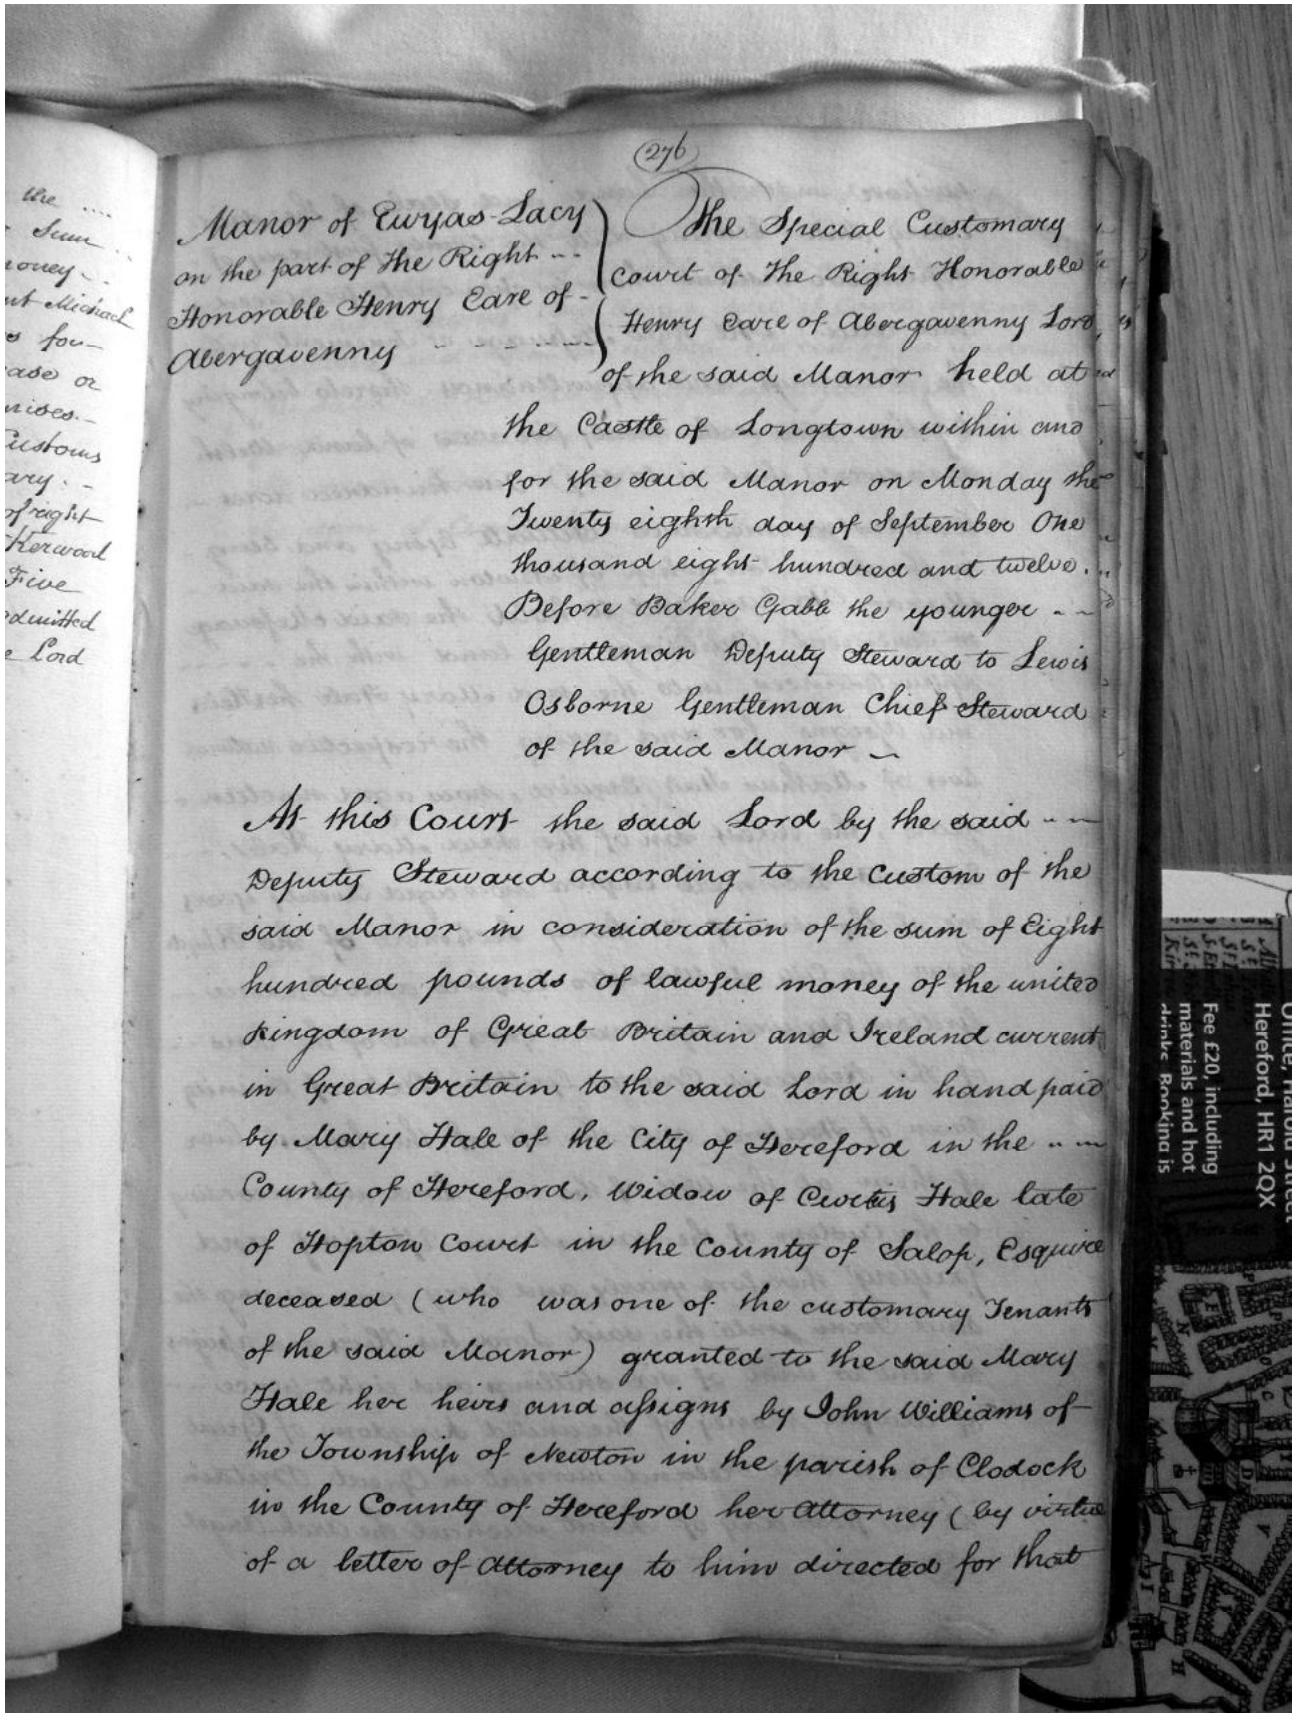 the ....
Sum
money -
Michael
for -
ase or
mises. -
Customs
ary. -
of right
Kerwood
Five
admitted
e Lord
(276)
Manor of Ewyas-Lacy
on the part of the Right - - -
Honorable Henry Earl of -
Abergavenny
The Special Customary
Court of The Right Honorable
Henry Earl of Abergavenny Lord
of the said Manor held at
the Castle of Longtown within and
for the said Manor on Monday the
Twenty eighth day of September One
thousand eight hundred and twelve.
Before Baker Gabb the younger - -
Gentleman Deputy Steward to Lewis
Osborne Gentleman Chief Steward
of the said Manor -
At this Court the said Lord by the said - -
Deputy Steward according to the Custom of the
said Manor in consideration of the sum of Eight
hundred pounds of lawful money of the united
Kingdom of Great Britain and Ireland current
in Great Britain to the said Lord in hand paid
by Mary Hale of the City of Hereford in the - -
County of Hereford, Widow of Curtis Hale late
of Hopton Court in the County of Salop, Esquire
deceased (who was one of the customary Tenants
of the said Manor) granted to the said Mary
Hale her heirs and assigns by John Williams of
the Township of Newton in the parish of Clodock
in the County of Hereford her Attorney (by virtue
of a letter of Attorney to him directed for that
Office, Harold Street
Hereford, HR1 2QX
Fee £20, including
materials and hot
drinks. Booking is